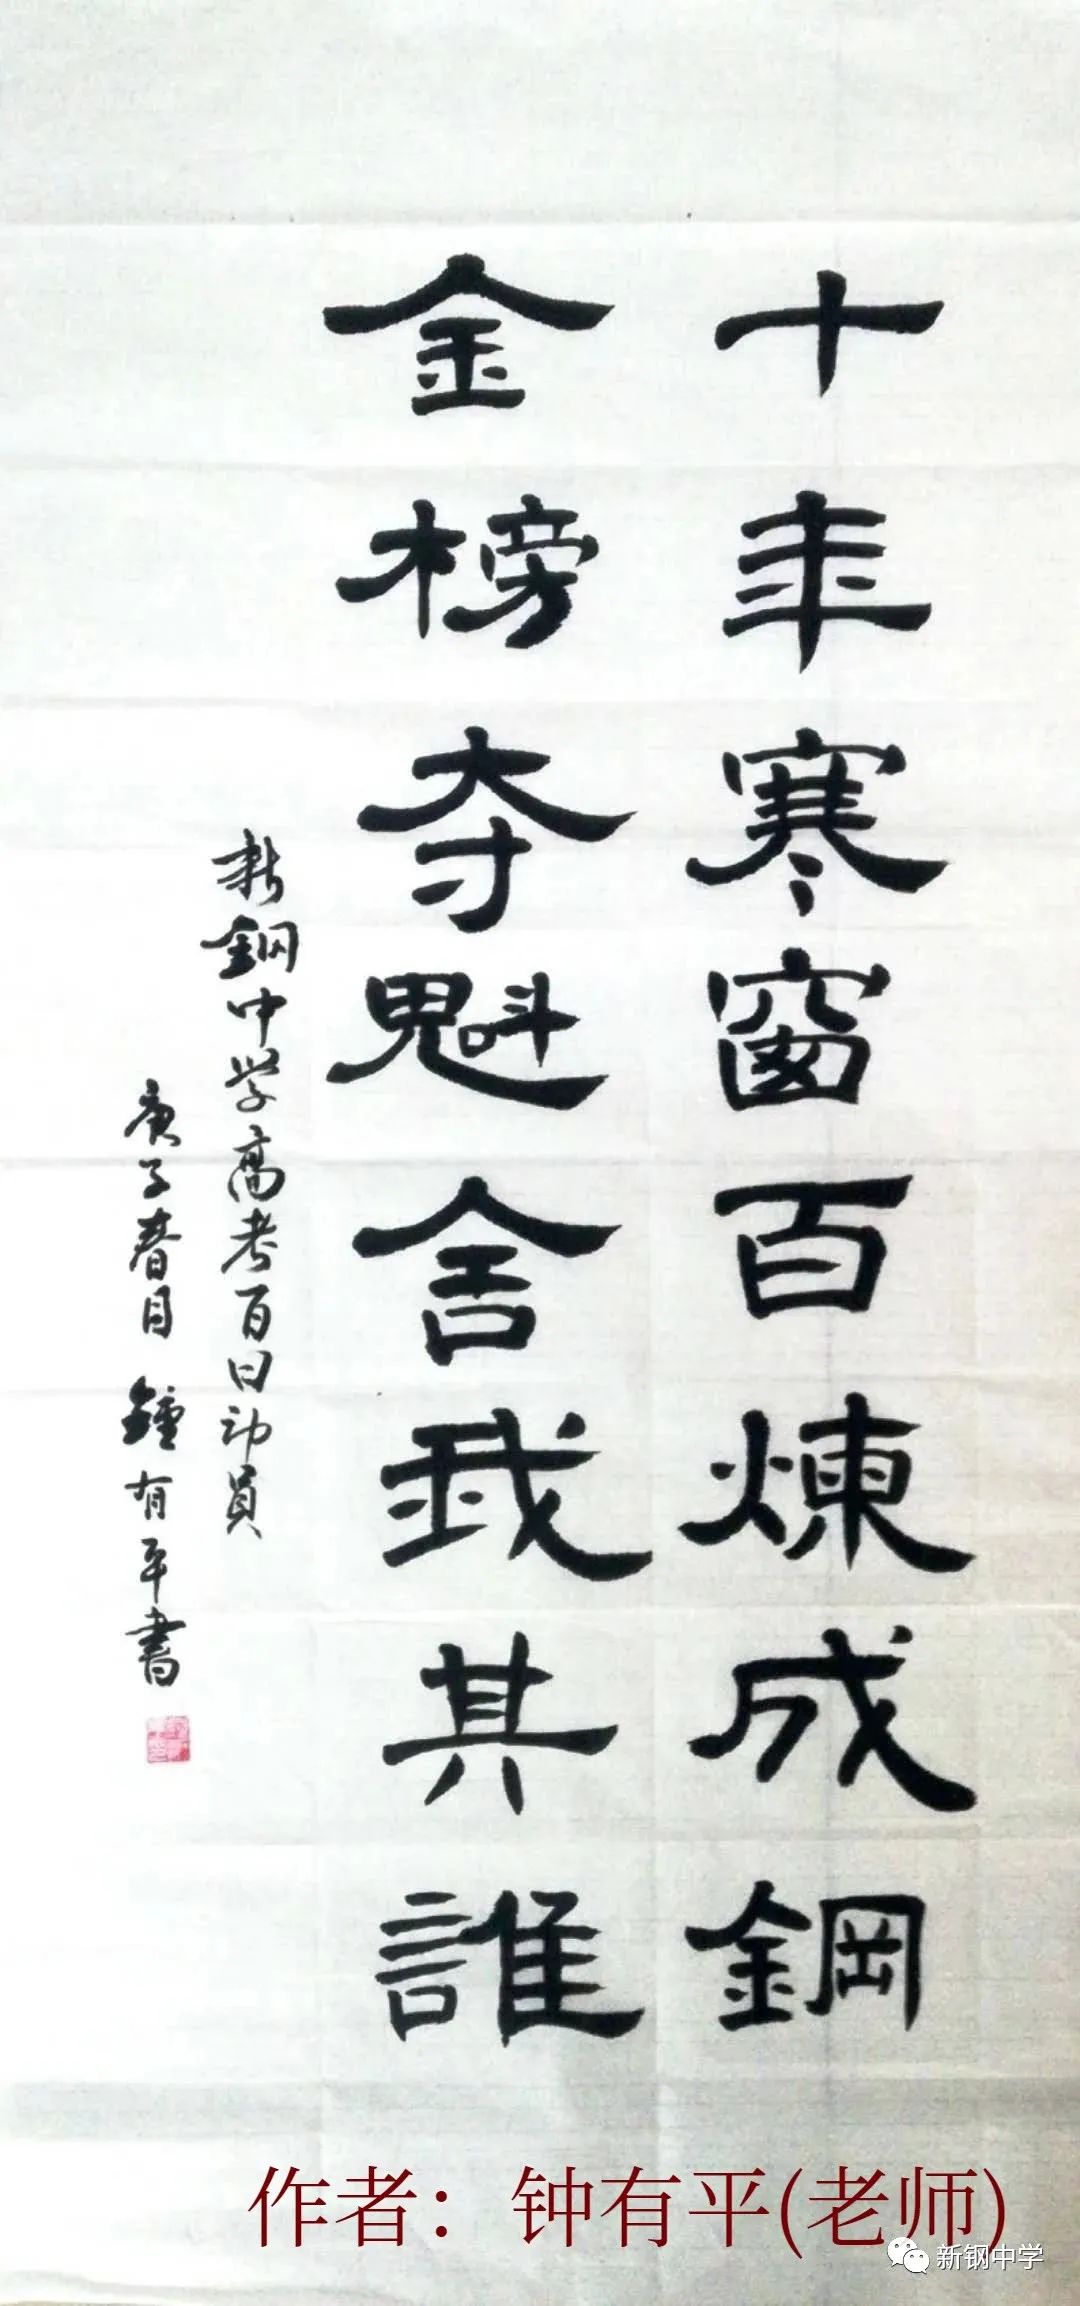 十年寒窗百煉成鋼
金榜夺魁舍我其誰
新鋼中学高考百日动員
庚子春月 鍾有平書
作者：钟有平(老师)
新钢中学